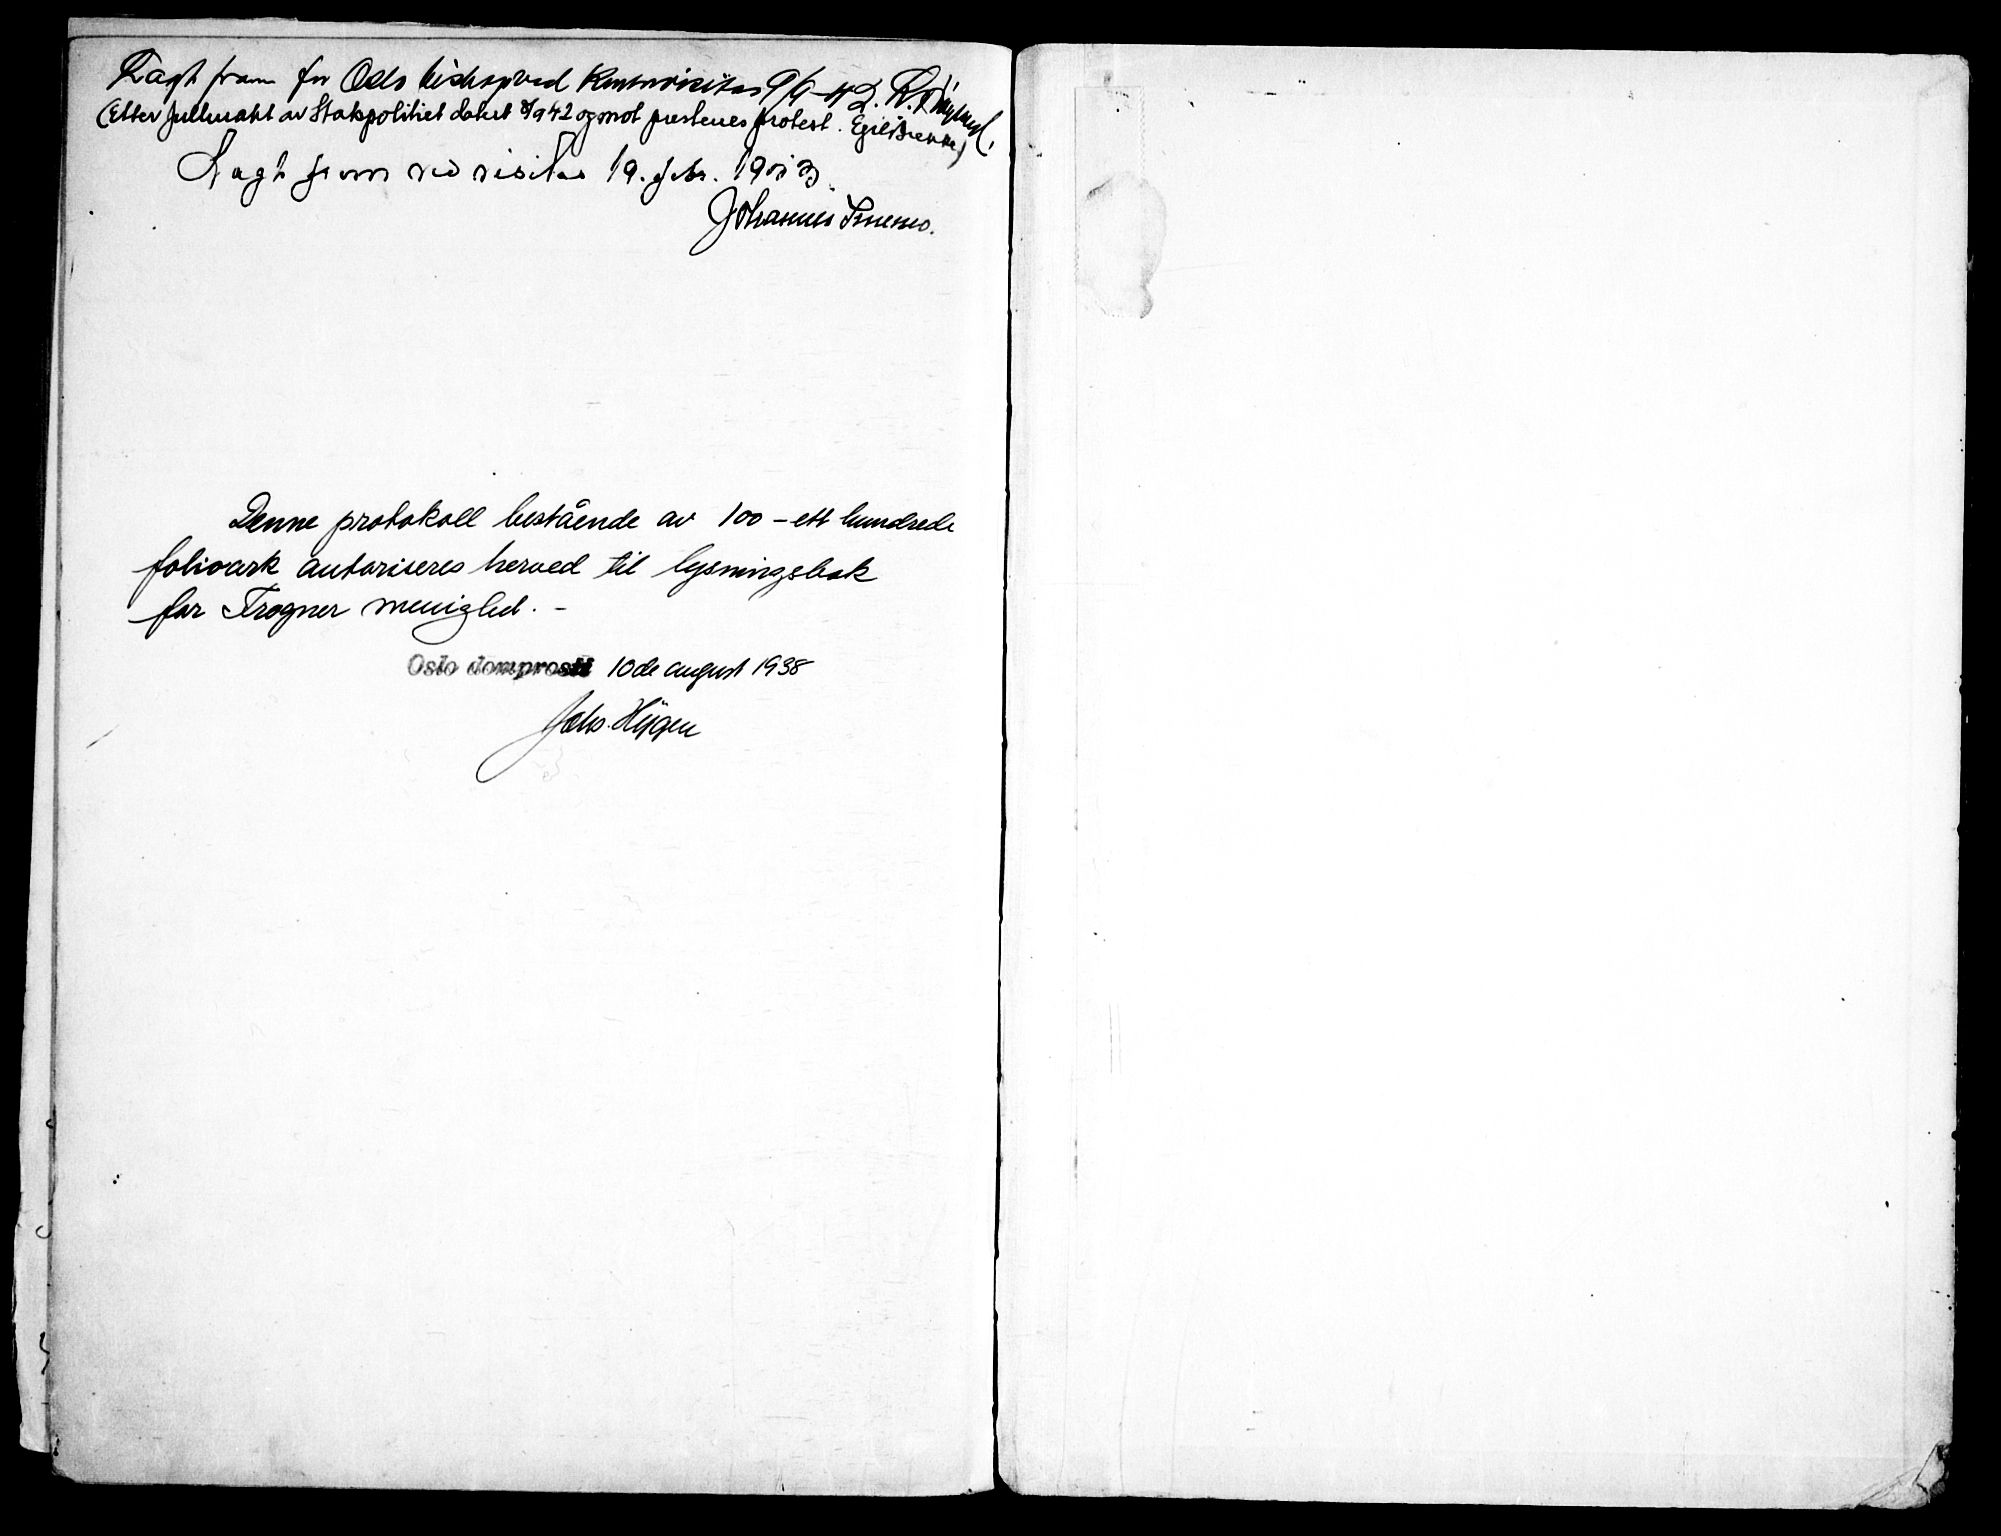 Lagt fram for Oslo biskop ved kontorvisitas 9/9-42. L. Frøyland.
(Etter fullmakt av Statspolitiet datert 8/9 42 og mot prestenes protest. Egil Brekke)
Lagt fram ved visitas 19. febr. 1953.
Johannes Smemo.
Denne protokoll bestående av 100 – ett hundrede
folioark autoriseres herved til lysningsbok
for Frogner menighet. –
Oslo domprosti 10de august 1938
Johs. Hygen